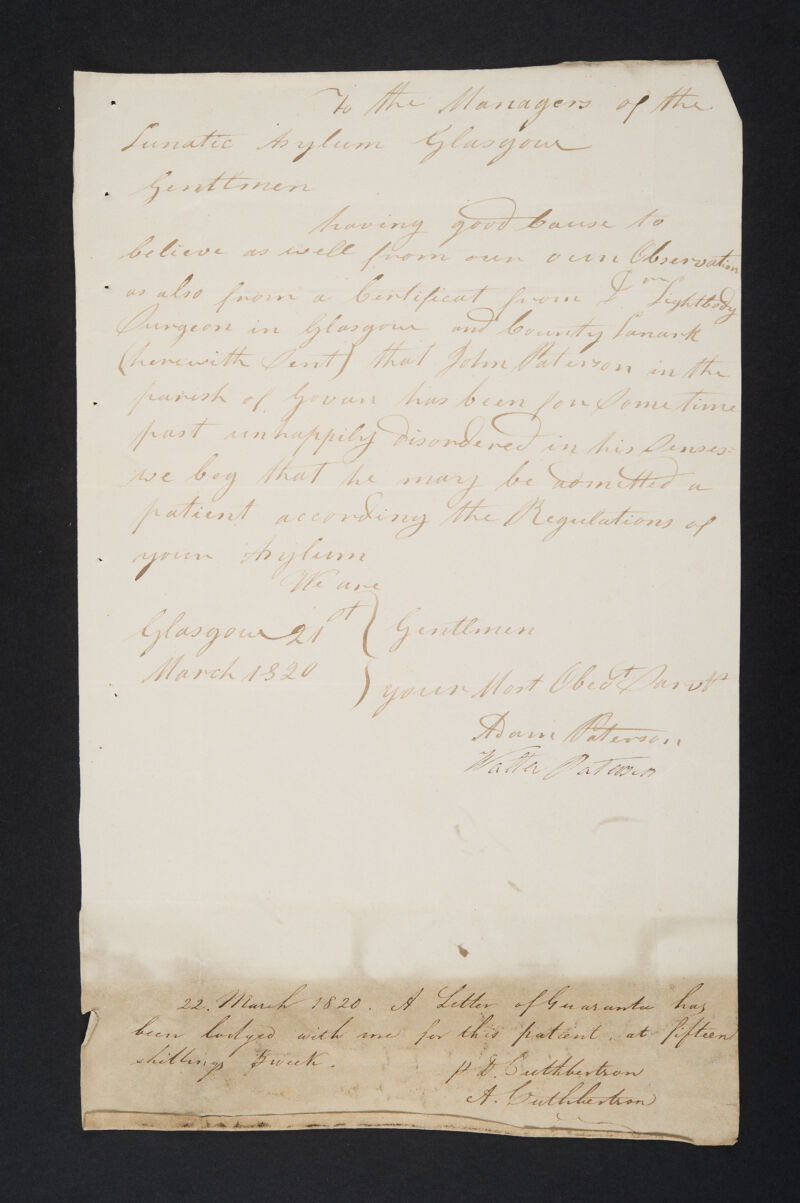 To the Managers of the
Lunatic Asylum Glasgow
Gentlmen
having good Cause to
believe as well from our own Observation
as also from a Certificat from Lightbody
Surgeon in Glasgow and County Lanark
(herewith Sent) that John Paterson in the
parish of Govan has been for Some time
past unhappily disordered in his Senses
we beg that he may be admitted a
patient according the Regulations of
your Asylum
We are
Glasgow 21st Gentlmen
March 1820
your Most Obedt Sarvts
Adam Paterson
Walter Paterson
22. March 1820. A Letter of Guarantee has
been lodged with me for this patient, at fifteen
shillings ℘ week.
p D. Cuthbertson
A. Cuthbertson